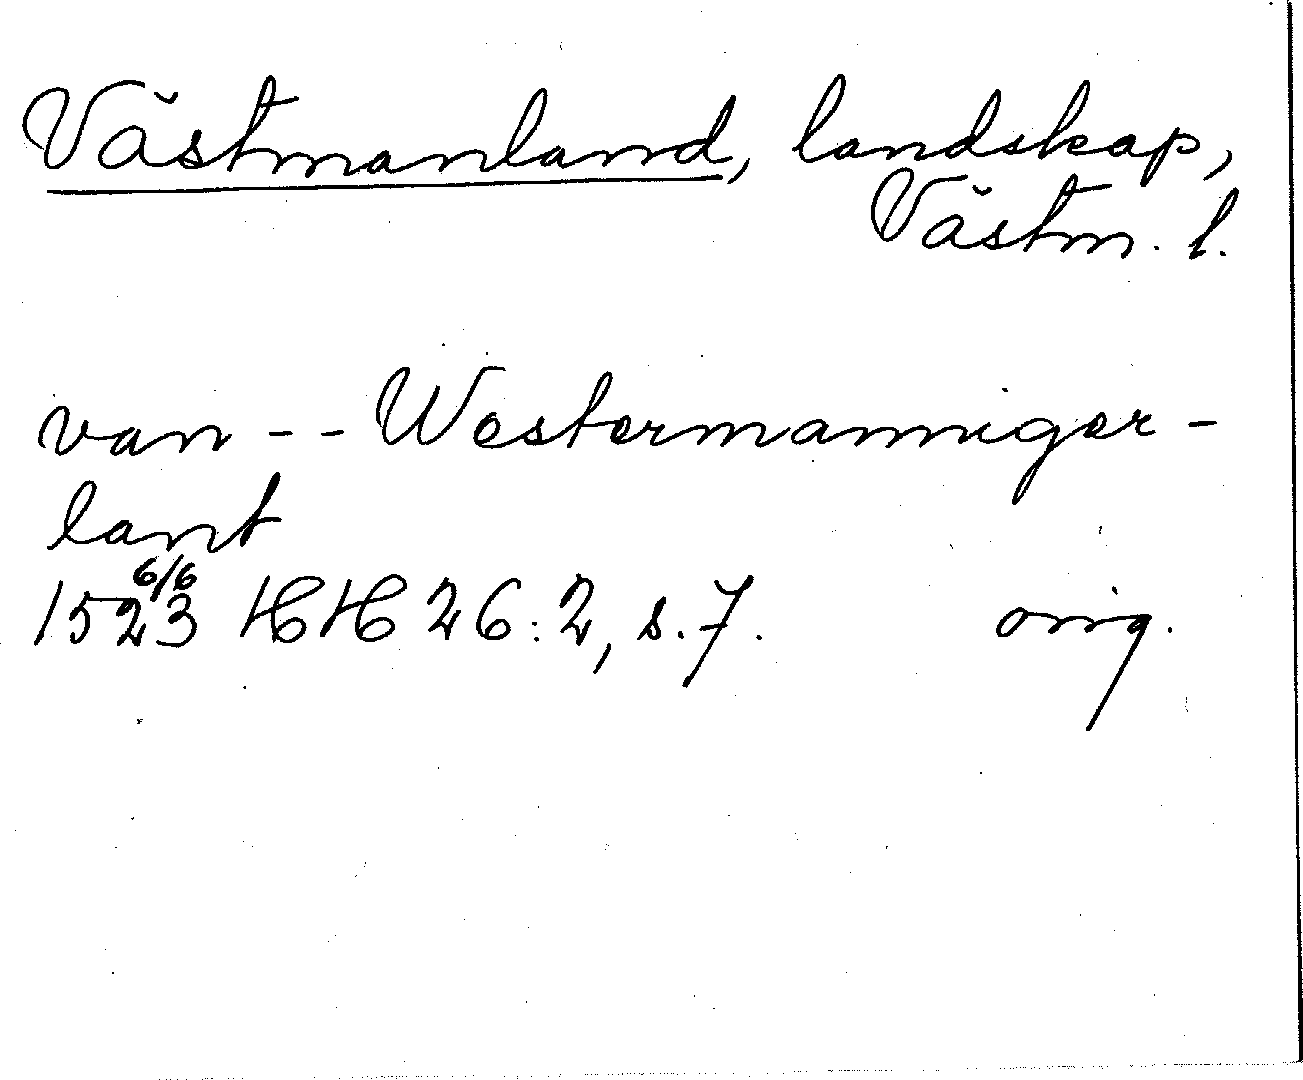 Västmanland, landskap,
Västm. l.
van -- Westermanniger-
lant
6/6
1523 HH 26:2, s. 7. orig.